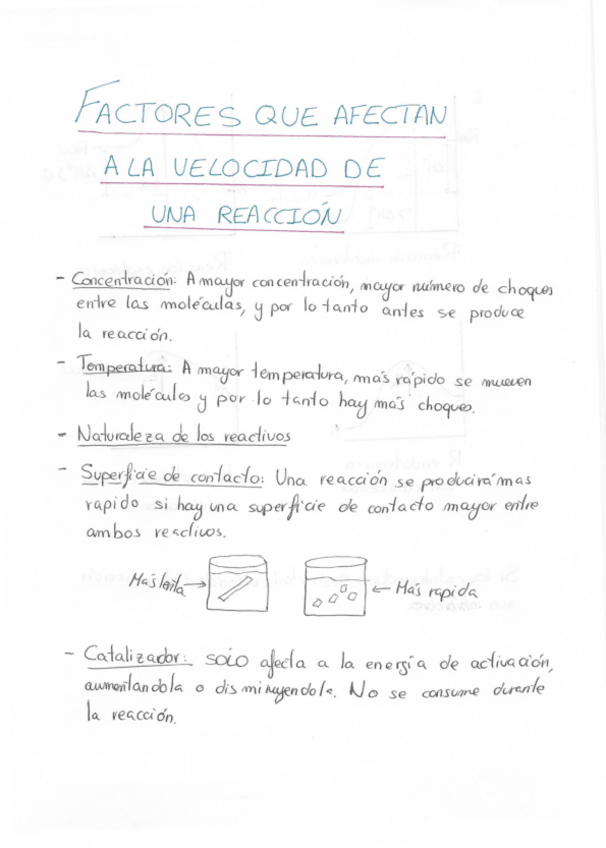 FACTORES QUE AFECTAN
A LA VELOCIDAD DE
UNA REACCIÓN
- Concentración: A mayor concentración, mayor número de choques
entre las moléculas, y por lo tanto antes se produce
la reacción.
- Temperatura: A mayor temperatura, más rápido se mueven
las moléculas y por lo tanto hay más choques.
- Naturaleza de los reactivos
- Superficie de contacto: Una reacción se producirá mas
rapido si hay una superficie de contacto mayor entre
ambos reactivos.
Más lenta → ← Más rapida
- Catalizador: SOLO afecta a la energía de activación,
aumentandola o disminuyendola. No se consume durante
la reacción.